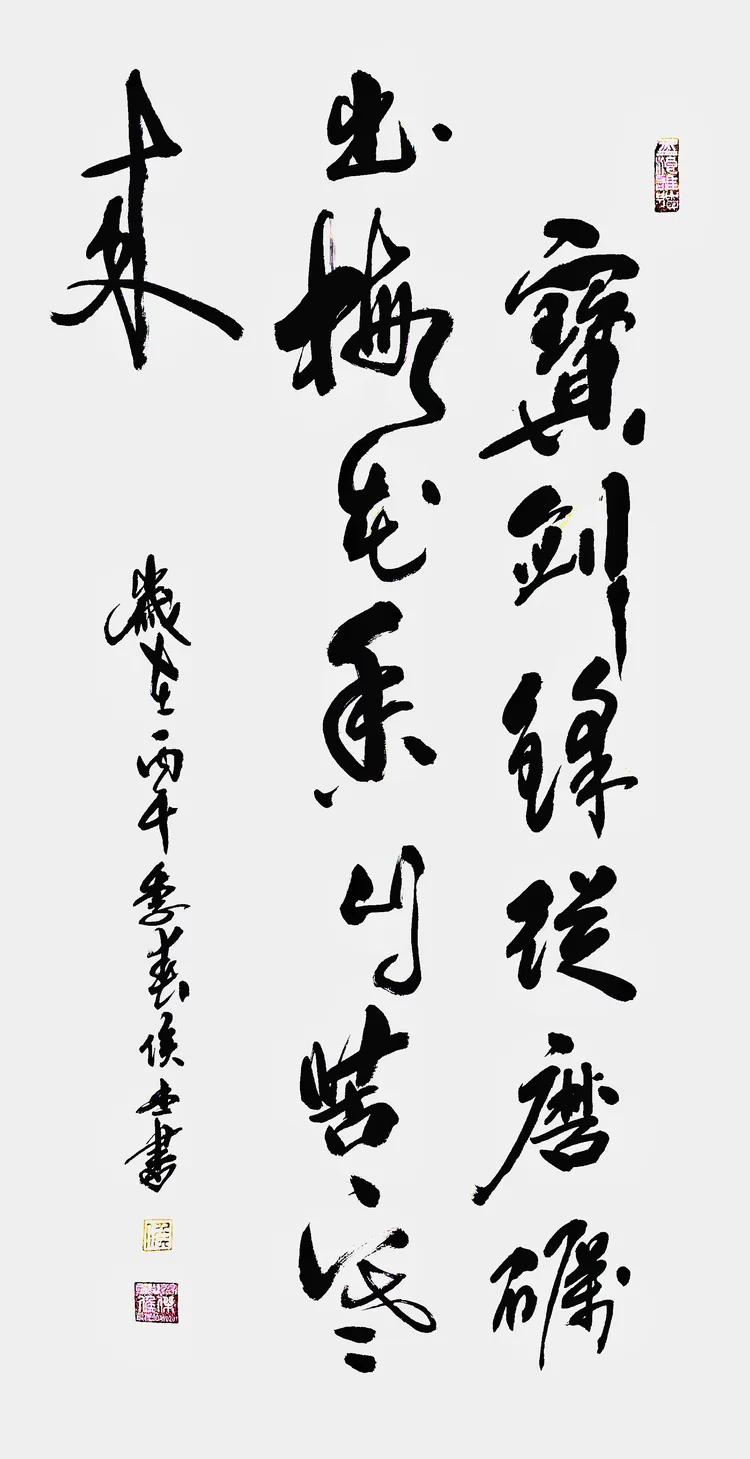 寶劍鋒從磨礪
出梅花香自苦寒
來
歲在丙午季春侯書